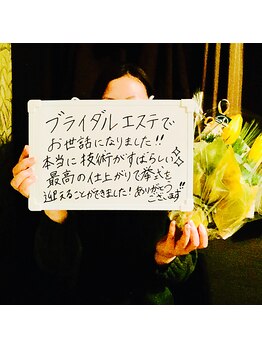 ブライダルエステで
お世話になりました!!
本当に技術がすばらしい✨
最高の仕上がりで挙式を
迎えることができました!ありがとう
ございます!!